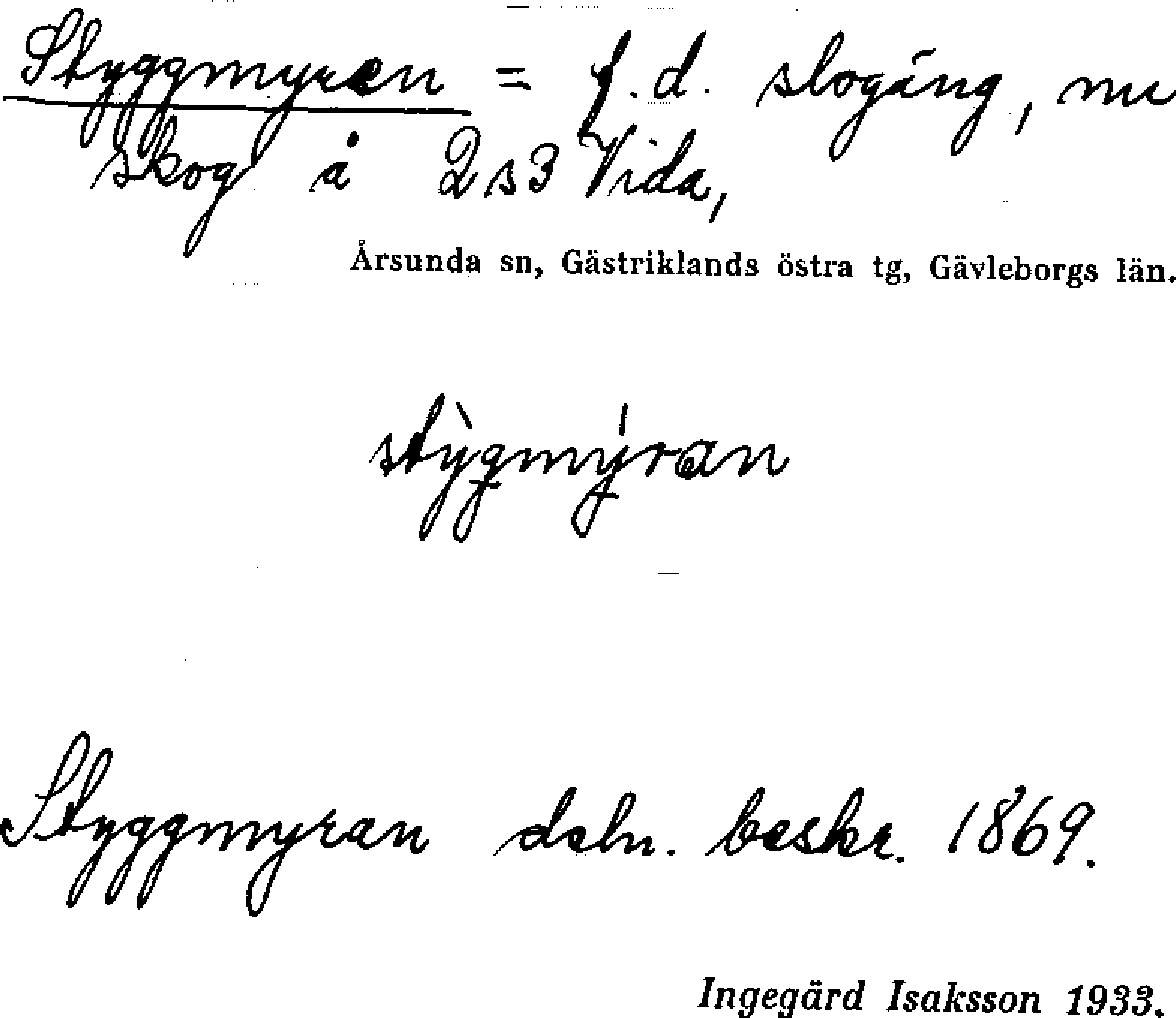 Styggmyren = f.d. slogäng, nu
skog å 2s3 Vida,
Årsunda sn, Gästriklands östra tg, Gävleborgs län.
stỳgmýran
Styggmyran deln. beskr. 1869.
Ingegärd Isaksson 1933.